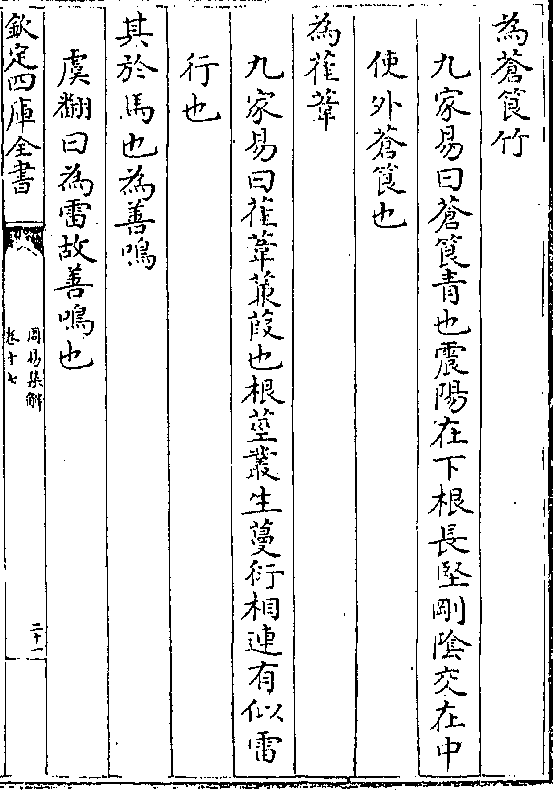 為蒼筤竹
九家易曰蒼筤青也震陽在下根長堅剛陰交在中
使外蒼筤也
為萑葦
九家易曰萑葦蒹葭也根莖叢生蔓衍相連有似雷
行也
其於馬也為善鳴
虞翻曰為雷故善鳴也
欽定四庫全書
周易集解
卷十七
二十一